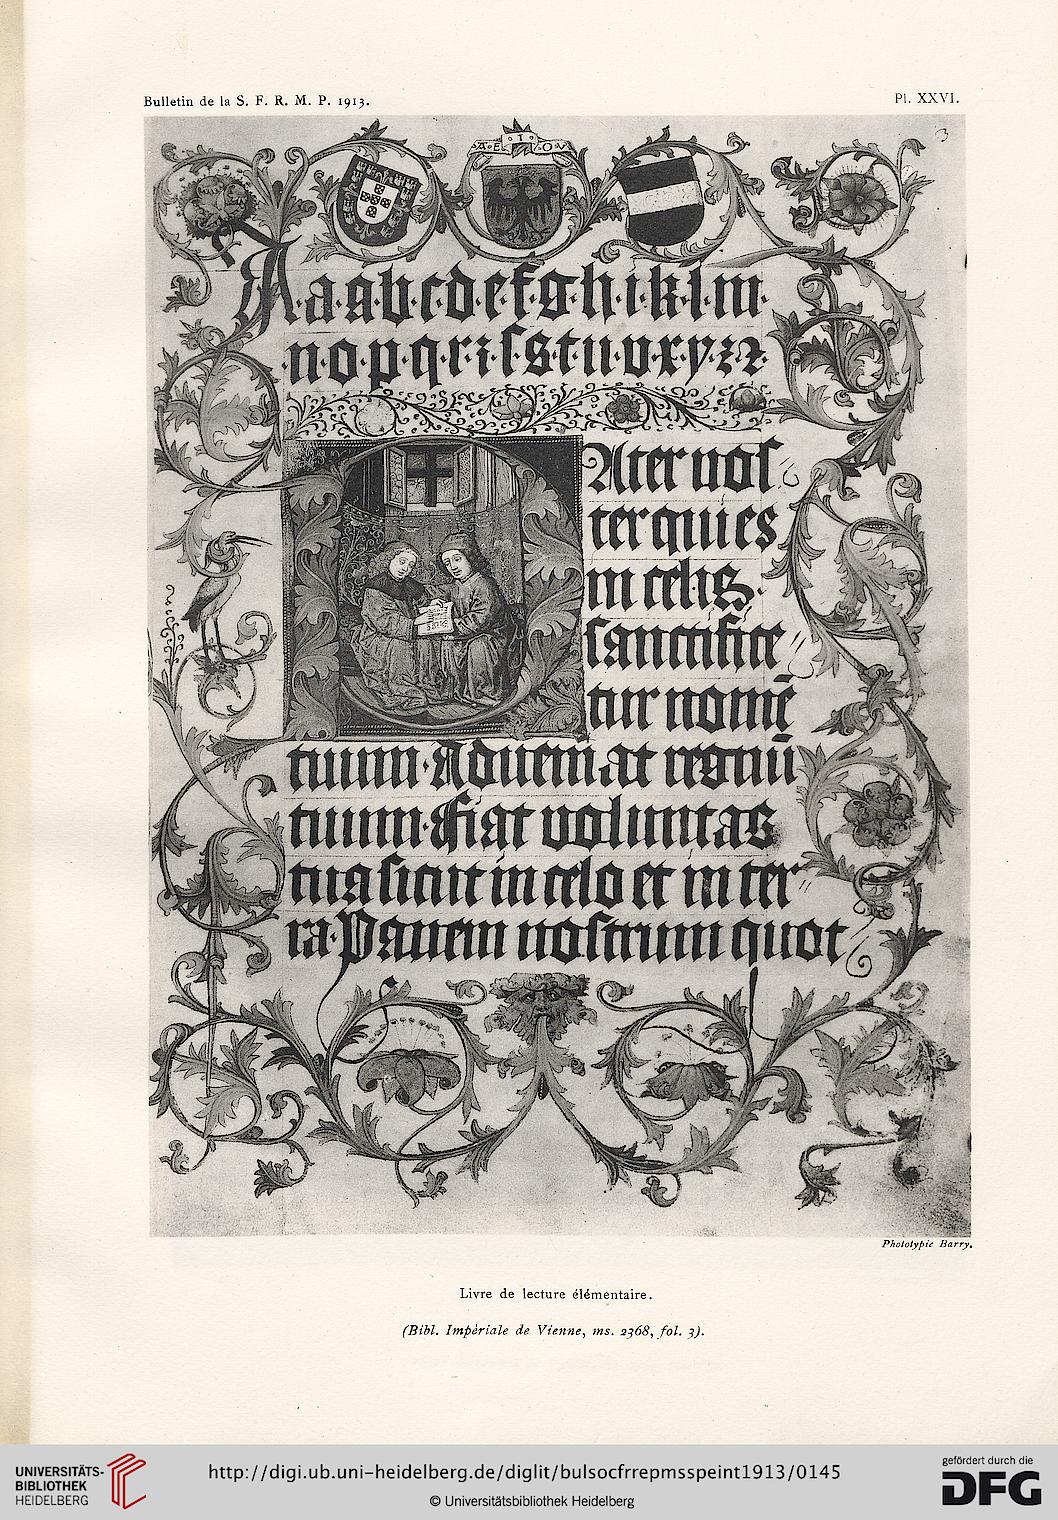 Bulletin de la S. F. R. M. P. 1913.
Pl. XXVI.
3
A·E·I·O·V
A·a·a·b·c·d·e·f·g·h·i·k·l·m·
n·o·p·q·r·ꝛ·ſ·s·t·u·v·x·y·z·ꝛ
PAter noſ
ter qui es
in celis·
ſanctifice
tur nomē
tuum·Adueniat regnū
tuum·Fiat voluntas
tua ſicut in celo et in ter
ra·Panem noſtrum quot
Phototypie Barry.
Livre de lecture élémentaire.
(Bibl. Impériale de Vienne, ms. 2368, fol. 3).
UNIVERSITÄTS-
BIBLIOTHEK
HEIDELBERG
http://digi.ub.uni-heidelberg.de/diglit/bulsocfrrepmsspeint1913/0145
© Universitätsbibliothek Heidelberg
gefördert durch die
DFG